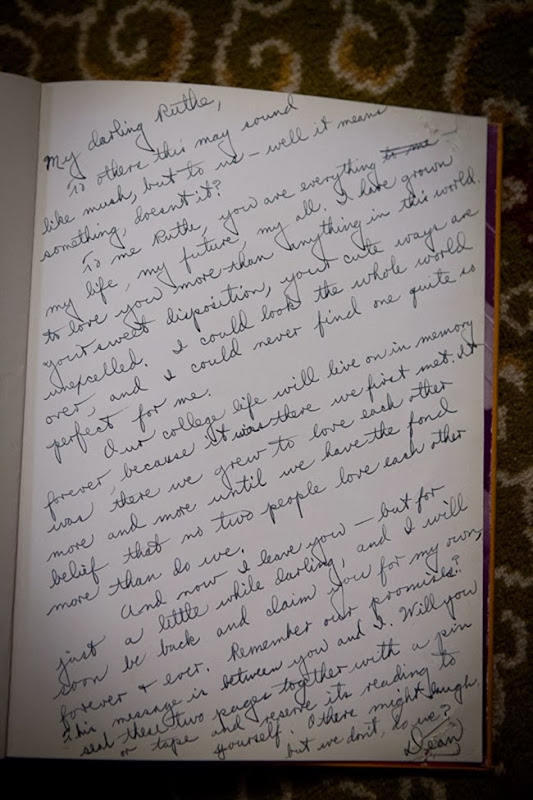 My darling Ruthe,
To others this may sound
like mush, but to us – well it means
something, doesn't it?
To me Ruthe, you are everything to me –
my life, my future, my all. I have grown
to love you more than anything in this world.
Your sweet disposition, your cute ways are
unexcelled. I could look the whole world
over, and I could never find one quite so
perfect for me.
Our college life will live on in memory
forever, because it was there we first met. It
was there we grew to love each other
more and more until we have the fond
belief that no two people love each other
more than do we.
And now I leave you – but for
just a little while darling, and I will
soon be back and claim you for my own,
forever & ever. Remember our promises?
This message is between you and I. Will you
seal these two pages together with a pin
or tape and reserve its reading to
yourself. Others might laugh,
but we don't, do we?
Dean